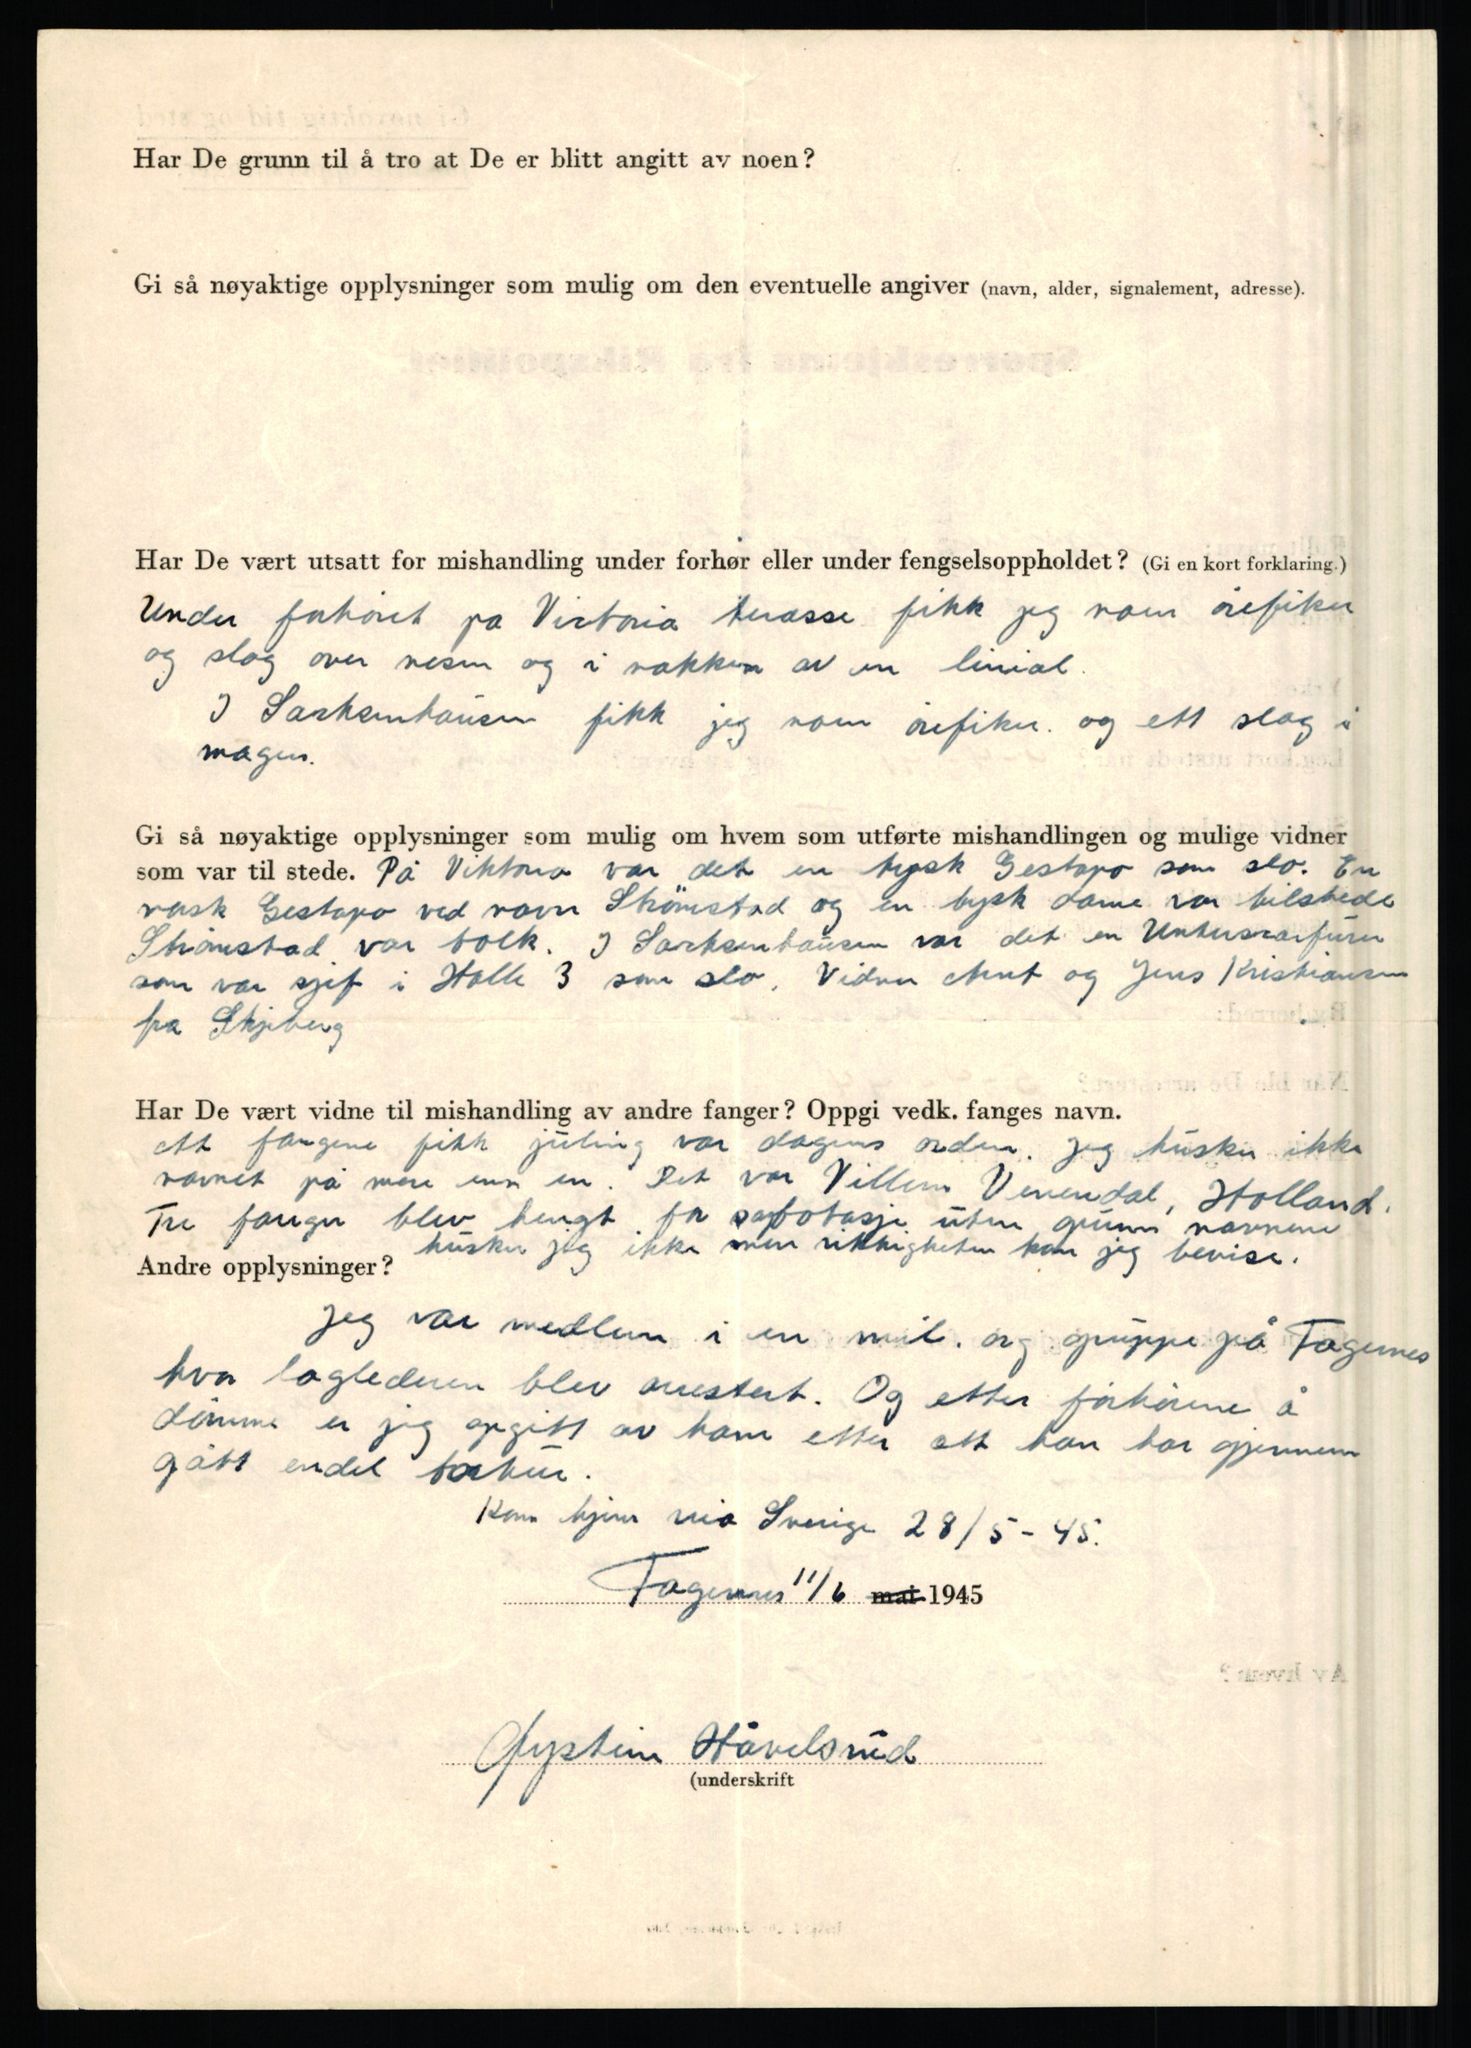 Har De grunn til å tro at De er blitt angitt av noen?
Gi så nøyaktige opplysninger som mulig om den eventuelle angiver (navn, alder, signalement, adresse).
Har De vært utsatt for mishandling under forhør eller under fengselsoppholdet? (Gi en kort forklaring.)
Under forhöret på Victoria terasse fikk jeg noen örefiker
og slag over nesen og i nakken av en linial.
I Sachsenhausen fikk jeg noen örefiker og ett slag i
magen.
Gi så nøyaktige opplysninger som mulig om hvem som utførte mishandlingen og mulige vidner
som var til stede. På Viktoria var det en tysk Gestapo som slo. En
norsk Gestapo ved navn Strömstad og en tysk dame var tilstede
Strömstad var tolk. I Sachsenhausen var det en Unterscarfürer
som var sjef i Halle 3 som slo. Vidner og Jens Kristiansen
fra Skjeberg
Har De vært vidne til mishandling av andre fanger? Oppgi vedk. fanges navn.
Att fangene fikk juling var dagens orden. Jeg husker ikke
navnet på mere enn en. Det var Villem Venendal, Holland.
Tre fanger blev hengt for sabotasje uten grunn navnene
husker jeg ikke men riktigheten kan jeg bevise.
Andre opplysninger?
Jeg var medlem i en mil. org gruppe på Fagernes
hvor laglederen blev arrestert. Og etter forhörene å
dömme er jeg opgitt av ham etter att han har gjennem
gått endel tortur.
Kom hjem via Sverige 28/5-45.
Fagernes 11/6 mai 1945
Øystein Håvelsrud
(underskrift